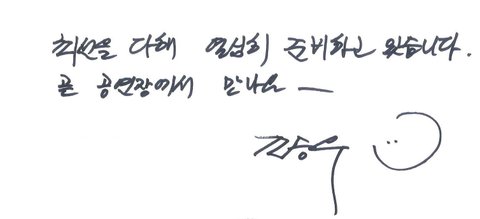 최선을 다해 열심히 준비하고 있습니다.
곧 공연장에서 만나요 —